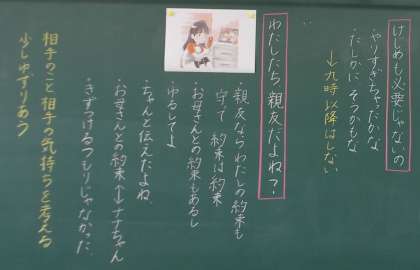 けじめも必要じゃないの
・やりすぎちゃたかな
・たしかに、そうかもな
↓九時以降はしない
わたしたち親友だよね?
・親友ならわたしの約束も
守って 約束は約束
・お母さんとの約束もあるし
・ゆるしてよ
・ちゃんと伝えたよね、
・お母さんとの約束↔ナナちゃん
・きずつけるつもりじゃなかった、
相手のこと相手の気持ちを考える
少しゆずりあう